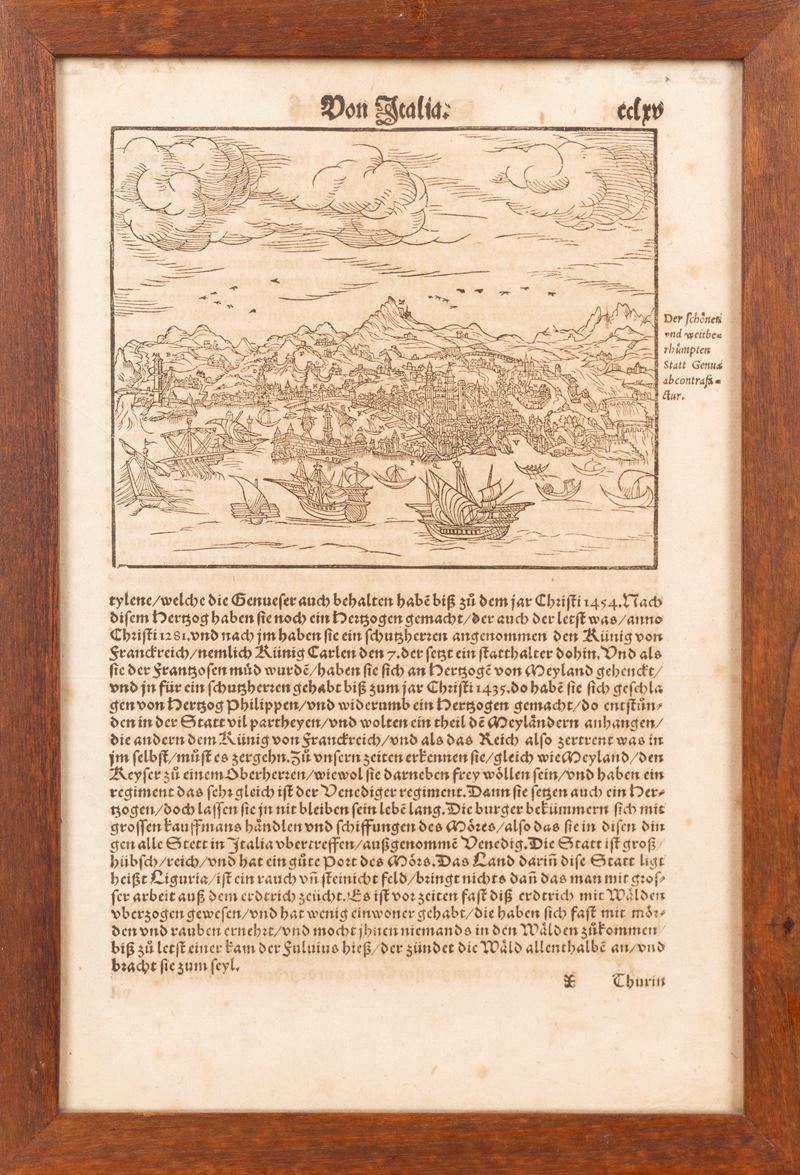 Von Italia.
cclxv
Der schönen
vnd weitbe=
rhůmpten
Statt Genua
abcontrafa=
ctur.
tylene/welche die Genueser auch behalten habē biß zů dem jar Christi 1454. Nach
disem Hertzog haben sie noch ein Hertzogen gemacht/der auch der letst was/anno
Christi 1281. vnd nach jm haben sie ein schutzherren angenommen den Künig von
Franckreich/nemlich Künig Carlen den 7. der setzt ein statthalter dohin. Vnd als
sie der Frantzosen můd wurdē/haben sie sich an Hertzogē von Meyland gehenckt/
vnd jn für ein schutzherren gehabt biß zum jar Christi 1435. do habē sie sich geschla
gen von Hertzog Philippen/vnd widerumb ein Hertzogen gemacht/do entstůn=
den in der Statt vil partheyen/vnd wolten ein theil dē Meyländern anhangen/
die andern dem Künig von Franckreich/vnd als das Reich also zertrent was in
jm selbst/můst es zergehn. Zů vnsern zeiten erkennen sie/gleich wie Meyland/den
Keyser zů einem Oberherren/wiewol sie darneben frey wöllen sein/vnd haben ein
regiment das sehr gleich ist der Venediger regiment. Dann sie setzen auch ein Her=
tzogen/doch lassen sie jn nit bleiben sein lebē lang. Die burger bekümmern sich mit
grossen kauffmans händlen vnd schiffungen des Möres/also das sie in disen din
gen alle Stett in Italia vbertreffen/außgenommē Venedig. Die Statt ist groß/
hübsch/reich/vnd hat ein gůte Port des Mörs. Das Land dariñ dise Statt ligt
heißt Liguria/ist ein rauch vñ steinicht feld/bringt nichts dañ das man mit gros=
ser arbeit auß dem erdtrich zeücht. Es ist vor zeiten fast diß erdtrich mit Wälden
vberzogen gewesen/vnd hat wenig einwoner gehabt/die haben sich fast mit mör=
den vnd rauben ernehrt/vnd mocht jhnen niemands in den Wälden zůkommen/
biß zů letst einer kam der Fuluius hieß/der zündet die Wäld allenthalbē an/vnd
bracht sie zum seyl.
Thurin